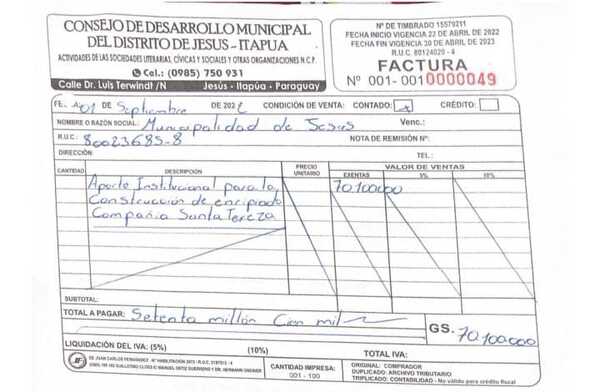 CONSEJO DE DESARROLLO MUNICIPAL
DEL DISTRITO DE JESUS - ITAPUA
ACTIVIDADES DE LAS SOCIEDADES LITERARIAS, CÍVICAS Y SOCIALES Y OTRAS ORGANIZACIONES N.C.P.
Cel.: (0985) 750 931
Calle Dr. Luis Terwindt /N Jesús - Itapúa - Paraguay
Nº DE TIMBRADO 15579211
FECHA INICIO VIGENCIA 22 DE ABRIL DE 2022
FECHA FIN VIGENCIA 30 DE ABRIL DE 2023
R.U.C. 80124020 - 4
FACTURA
Nº 001- 001 0000049
FE.. A 01 DE Septiembre DE 202 CONDICIÓN DE VENTA: CONTADO: x CRÉDITO:
NOMBRE O RAZÓN SOCIAL: Municipalidad de Jesús Venc.:
R.U.C.: 80023685-8 NOTA DE REMISIÓN Nº:
DIRECCIÓN: TEL.:
CANTIDAD DESCRIPCIÓN PRECIO UNITARIO VALOR DE VENTAS
EXENTAS 5% 10%
Aporte Institucional para la 70.100.000
Construcción de enripiado
Compañia Santa Tereza
SUBTOTAL:
TOTAL A PAGAR: Setenta millón Cien mil GS. 70.100.000
LIQUIDACIÓN DEL IVA: (5%) (10%) TOTAL IVA:
CANTIDAD IMPRESA:
001 - 100
ORIGINAL: COMPRADOR
DUPLICADO: ARCHIVO TRIBUTARIO
TRIPLICADO: CONTABILIDAD - No válido para crédito fiscal